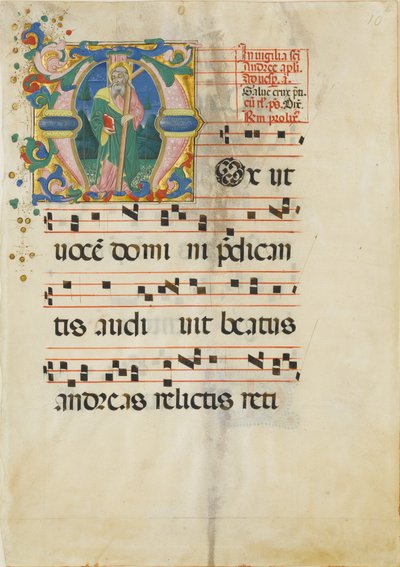 10
In vigilia sci
Andree apli.
Salue crux p̄ti
Rm prolix.
[M]Ox ut
uocē domi ni p̄dican
tis audi uit beatus
andreas relictis reti